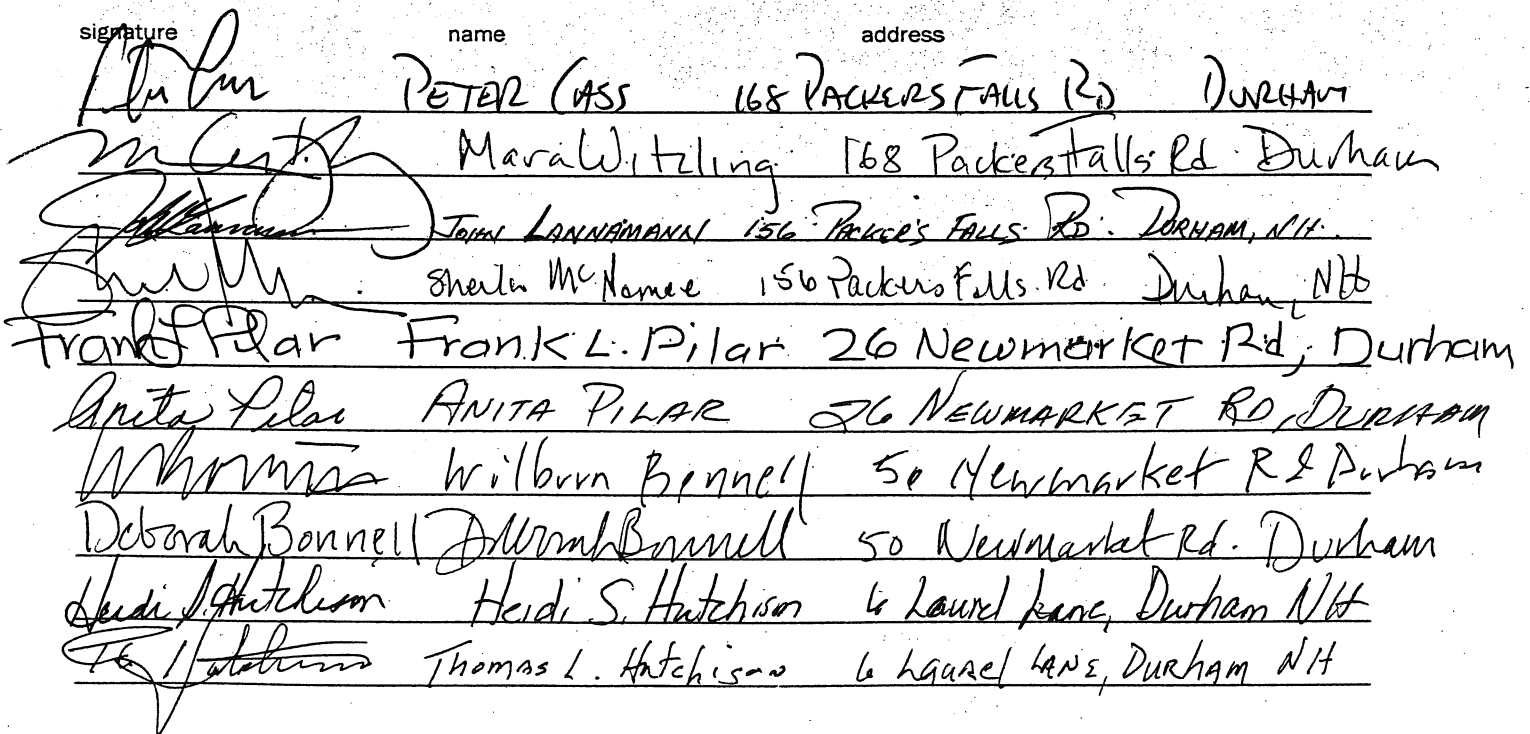 signature name address
PETER CASS 168 PACKERS FALLS RD DURHAM
Mara Witzling 168 Packers Falls Rd Durham
JOHN LANNAMANN 156 PACKER'S FALLS RD. DURHAM, NH.
Sheila McNamee 156 Packers Falls Rd Durham, NH
Frank Pilar Frank L. Pilar 26 Newmarket Rd, Durham
Anita Pilar ANITA PILAR 26 NEWMARKET RD, DURHAM
Wilburn Bonnell 50 Newmarket Rd Durham
Deborah Bonnell Deborah Bonnell 50 Newmarket Rd. Durham
Heidi S. Hutchison Heidi S. Hutchison 6 Laurel Lane, Durham NH
Thomas L. Hutchison 6 Laurel LANE, DURHAM NH